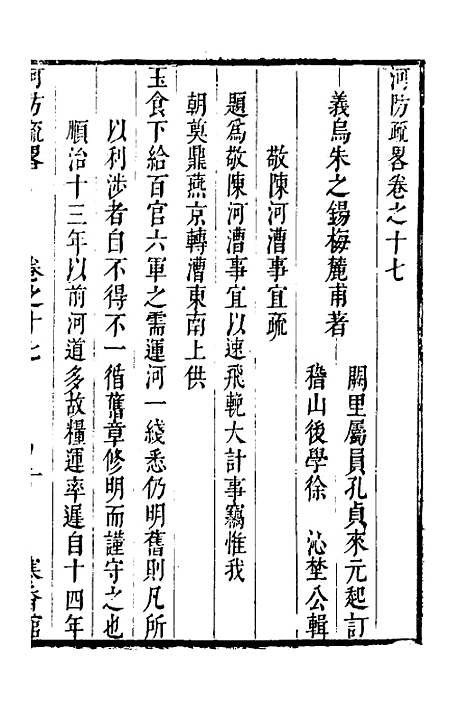 河防疏畧卷之十七
闕里屬員孔貞來元起訂
義烏朱之錫梅麓甫著
稽山後學徐　沁埜公輯
敬陳河漕事宜疏
題爲敬陳河漕事宜以速飛輓大計事竊惟我
朝奠鼎燕京轉漕東南上供
玉食下給百官六軍之需運河一綫悉仍明舊則凡所
以利涉者自不得不一循舊章修明而謹守之也
順治十三年以前河道多故糧運率遲自十四年
河防疏畧
卷之十七
一
寒香館